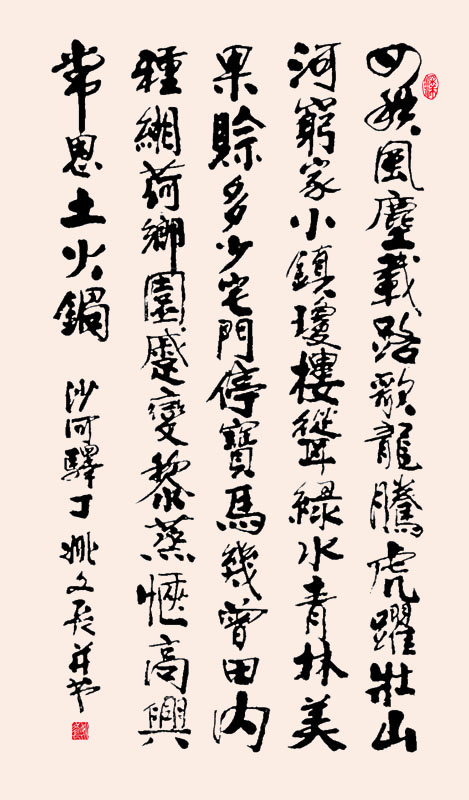 四秩風塵載路歌龍騰虎躍壯山
河窮家小鎮瓊樓聳綠水青林美
果賒多少宅門停寶馬幾曾田內
種緗荷鄉園變黎蒸愜高興
常思土火鍋
沙河驛丁文并書